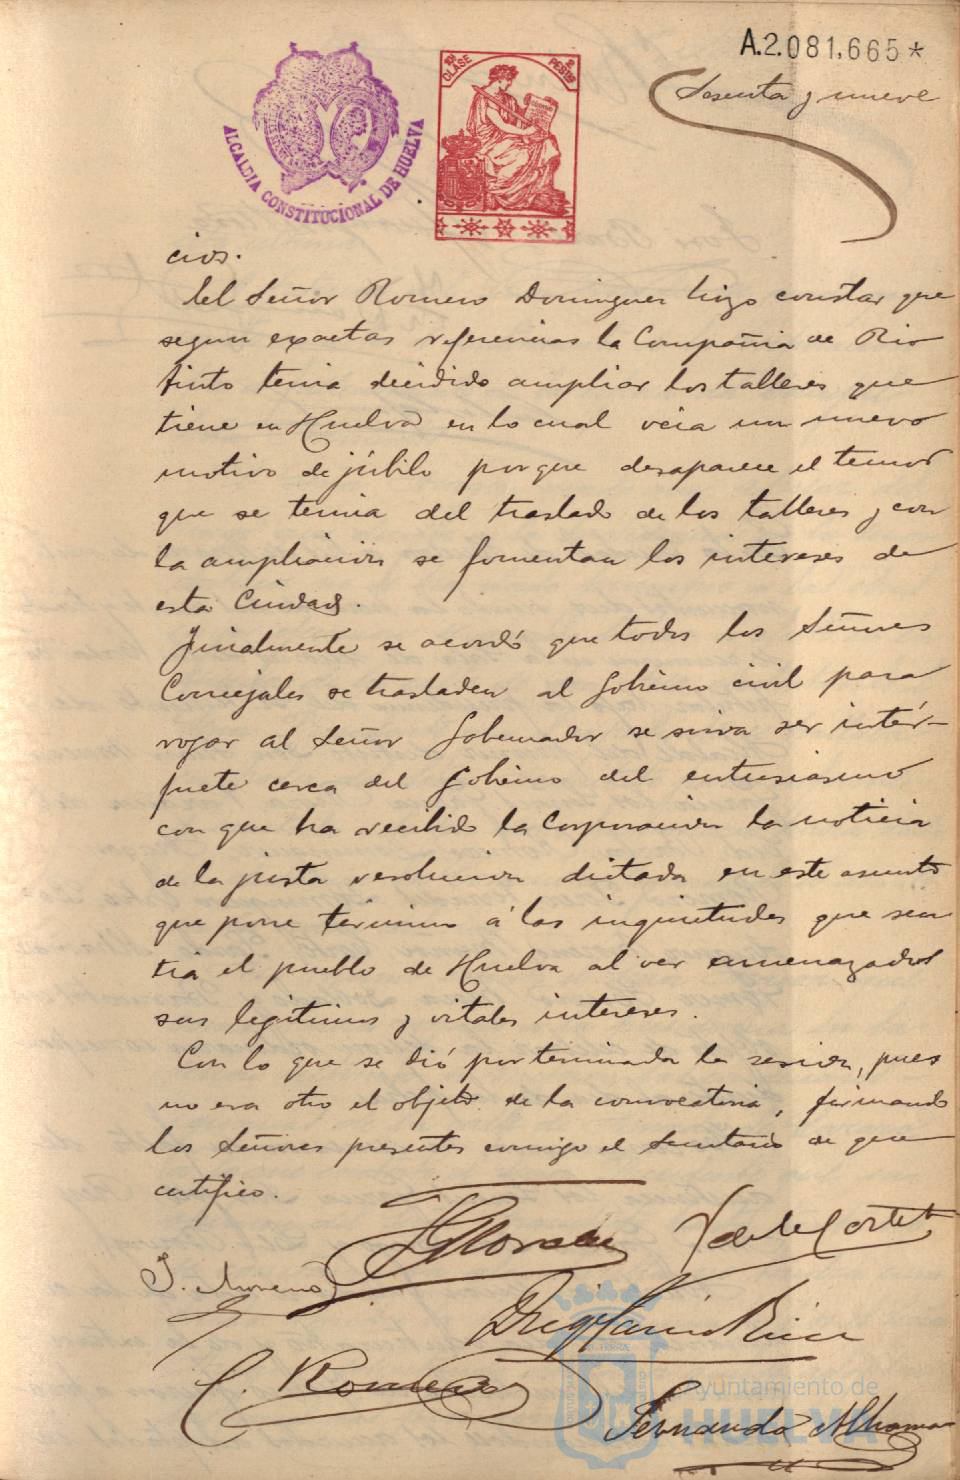 A.2.081,665*
Sesenta y nueve
10ª CLASE
2 PESETAS
ALCALDIA CONSTITUCIONAL DE HUELVA
cios.
el Señor Romero Dominguez hizo constar que
segun exactas referencias la Compañia de Rio
tinto tenia decidido ampliar los talleres que
tiene en Huelva en lo cual veia un nuevo
motivo de júbilo porque desaparece el temor
que se tenia del traslado de los talleres y con
la ampliacion se fomentan los intereses de
esta Ciudad.
Finalmente se acordó que todos los Señores
Concejales se trasladen al Gobierno civil para
rogar al Señor Gobernador se sirva ser intér-
prete cerca del Gobierno del entusiasmo
con que ha recibido la Corporacion la noticia
de la justa resolucion dictada en este asunto
que pone término á las inquietudes que sen
tia el pueblo de Huelva al ver amenazados
sus legitimos y vitales intereses.
Con lo que se dió por terminada la sesion, pues
no era otro el objeto de la convocatoria, firmando
los Señores presentes conmigo el Secretario de que
certifico.
de la Corte
J. Moreno
Garcia
C. Romero
Ayuntamiento de
HUELVA
Fernando